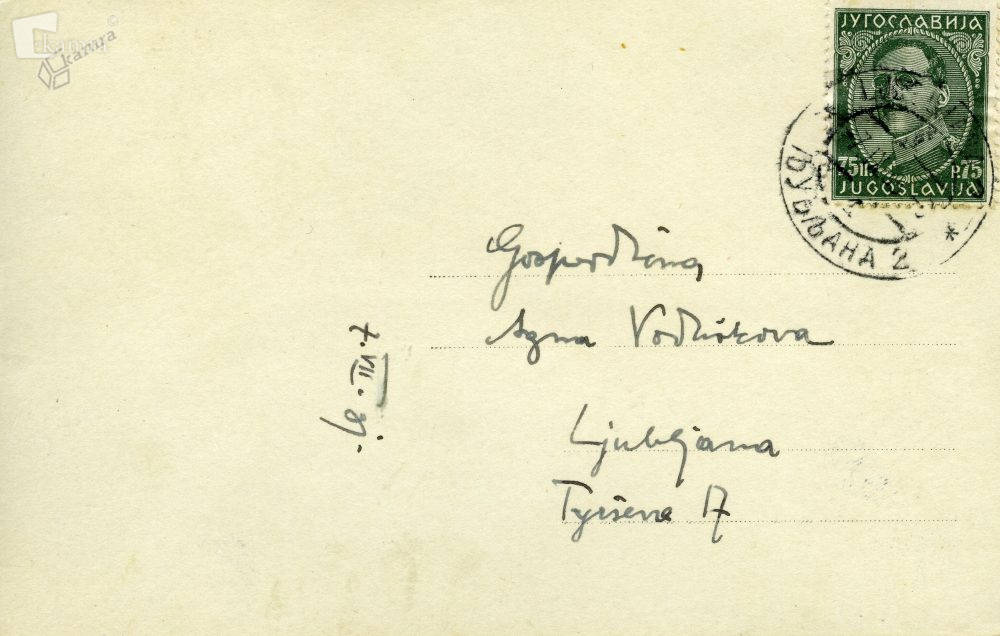 kamra
ЈУГОСЛАВИЈА
75 P.75
JUGOSLAVIJA
ЉУБЉАНА 2
Gospodična
Agna Vodiškova
Ljubljana
Tyrševa 17